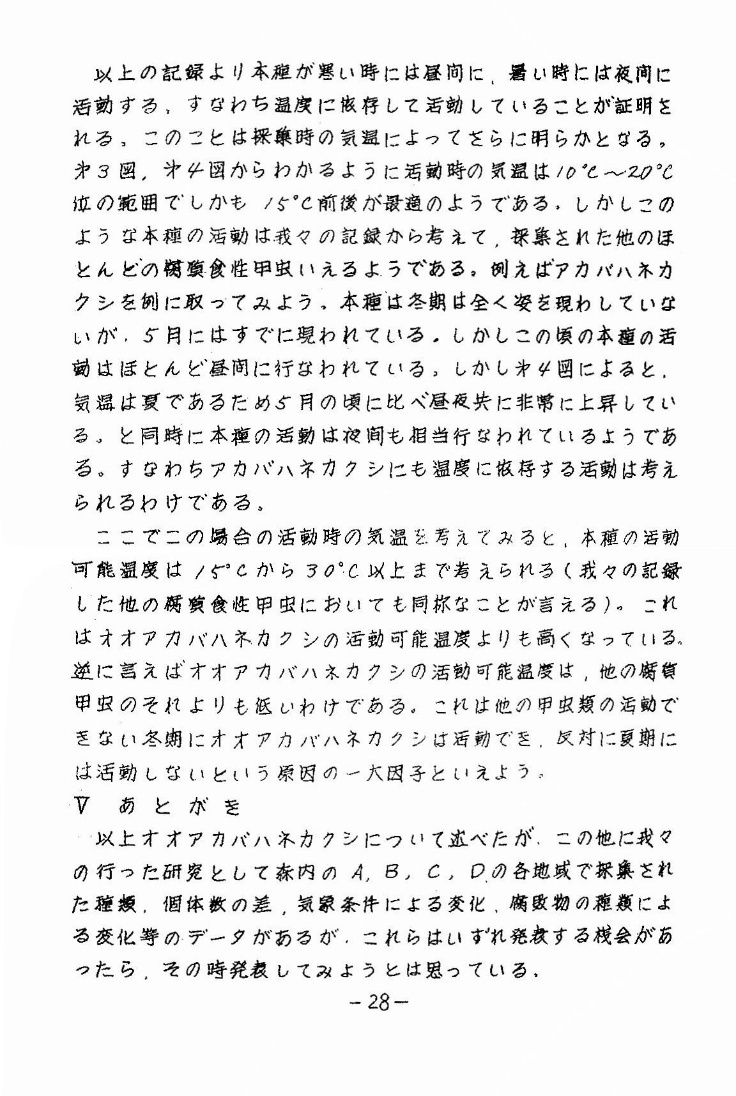 以上の記録より本種が寒い時には昼间に，暑い時には夜间に
活動する，すなわち温度に依存して活動していることが証明さ
れる。このことは採集時の気温によってさらに明らかとなる。
第３図，第４図からわかるように活動時の気温は10℃～20℃
位の範囲でしかも 15℃前後が最適のようである。しかしこの
ような本種の活動は我々の記録から考えて，採集された他のほ
とんどの腐食性甲虫いえるようである。例えばアカバハネカ
クシを例に取ってみよう。本種は冬期は全く姿を現わしていな
いが，５月にはすでに現われている。しかしこの頃の本種の活
動はほとんど昼间に行なわれている。しかし第４図によると，
気温は夏であるため５月の頃に比べ昼夜共に非常に上昇してい
る。と同時に本種の活動は夜间も相当行なわれているようであ
る。すなわちアカバハネカクシにも温度に依存する活動は考え
られるわけである。
ここでこの場合の活動時の気温を考えてみると，本種の活動
可能温度は 15℃から30℃以上まで考えられる（我々の記録
した他の腐食性甲虫においても同様なことが言える）。これ
はオオアカバハネカクシの活動可能温度よりも高くなっている。
逆に言えばオオアカバハネカクシの活動可能温度は，他の腐
甲虫のそれよりも低いわけである。これは他の甲虫類の活動で
きない冬期にオオアカバハネカクシは活動でき，反対に夏期に
は活動しないという原因の一大因子といえよう。
Ⅴ あとがき
以上オオアカバハネカクシについて述べたが，この他に我々
の行った研究として森内の A, B, C, D の各地域で採集され
た種類，個体数の差，気象条件による変化，腐敗物の種類によ
る変化等のデータがあるが，これらはいずれ発表する機会があ
ったら，その時発表してみようとは思っている。
－28－